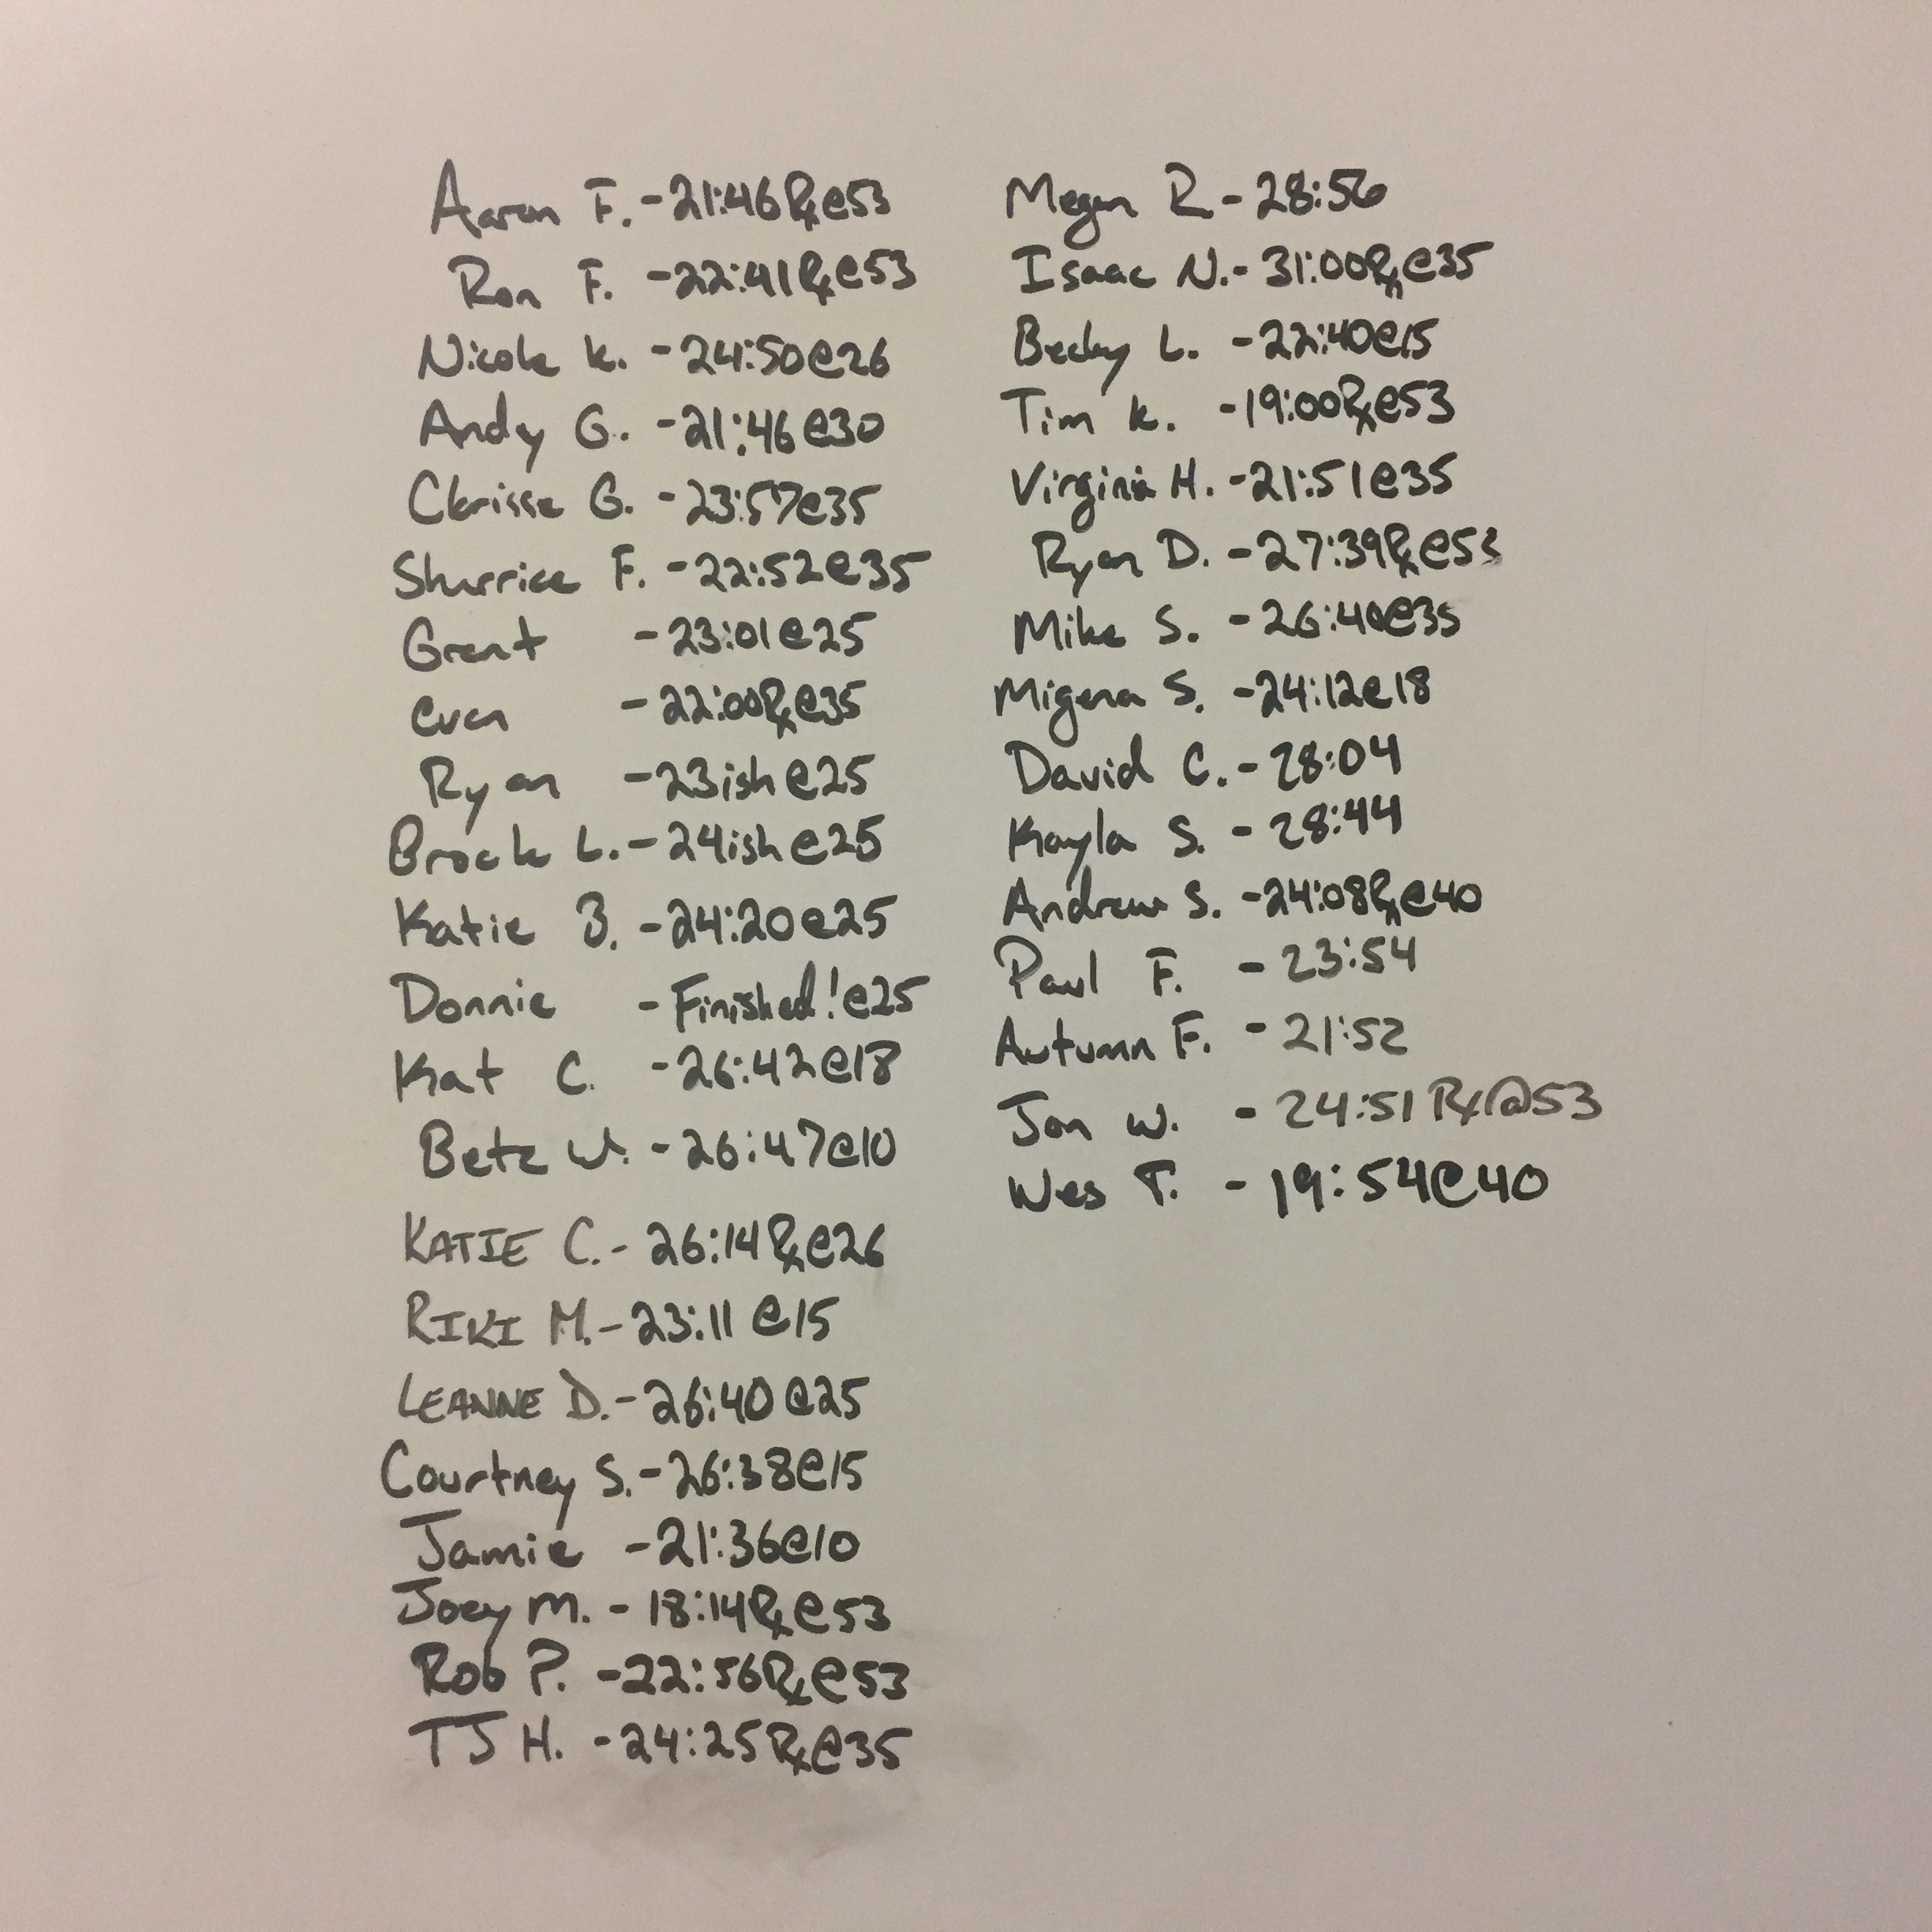 Aaron F. -21:46Rx@53
Ron F. -22:41Rx@53
Nicole K. -24:50@26
Andy G. -21:46@30
Clarisse G. -23:57@35
Sharrice F. -22:52@35
Grant -23:01@25
Evan -22:00Rx@35
Ryan -23ish@25
Brock L. -24ish@25
Katie B. -24:20@25
Donnie -Finished!@25
Kat C. -26:42@18
Betz W. -26:47@10
KATIE C. - 26:14Rx@26
RIKI M. -23:11@15
LEANNE D. -26:40@25
Courtney S. -26:38@15
Jamie -21:36@10
Joey M. - 18:14Rx@53
Rob P. -22:56Rx@53
TJ H. -24:25Rx@35
Megan R - 28:56
Isaac N. - 31:00Rx@35
Becky L. -22:40@15
Tim K. -19:00Rx@53
Virginia H. -21:51@35
Ryan D. -27:39Rx@53
Mike S. -26:40@35
Migena S. -24:12@18
David C. - 28:04
Kayla S. - 28:44
Andrew S. -24:08Rx@40
Paul F. - 23:54
Autumn F. - 21:52
Jon W. - 24:51 Rx@53
Wes T. - 19:54@40